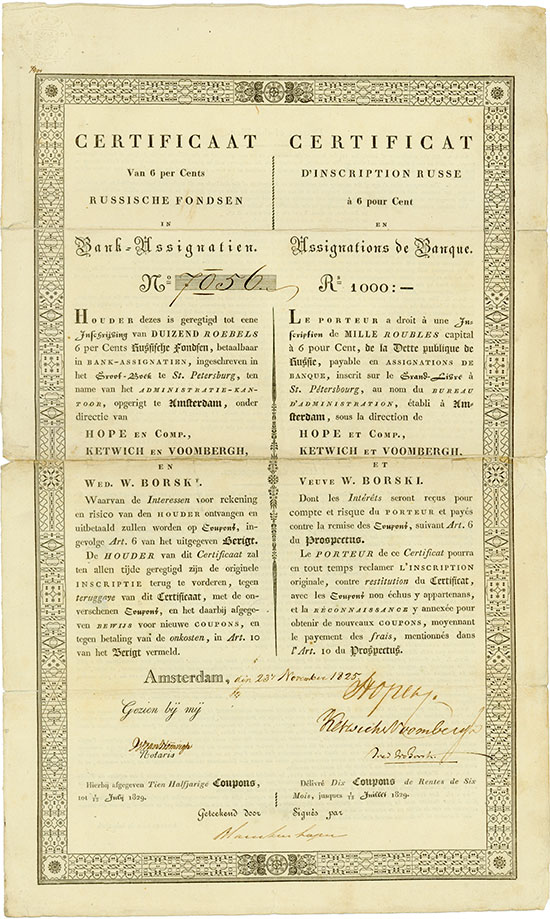 CERTIFICAAT
Van 6 per Cents
RUSSISCHE FONDSEN
IN
Bank-Assignatien.
CERTIFICAT
D'INSCRIPTION RUSSE
à 6 pour Cent
EN
Assignations de Banque.
No 7056. Rs 1000:—
HOUDER dezes is geregtigd tot eene
Inschrijving van DUIZEND ROEBELS
6 per Cents Russische Fondsen, betaalbaar
in BANK-ASSIGNATIEN, ingeschreven in
het Groot-Boek te St. Petersburg, ten
name van het ADMINISTRATIE-KAN-
TOOR, opgerigt te Amsterdam, onder
directie van
HOPE EN COMP.,
KETWICH EN VOOMBERGH,
EN
WED. W. BORSKI.
Waarvan de Interessen voor rekening
en risico van den HOUDER ontvangen en
uitbetaald zullen worden op Coupons, in-
gevolge Art. 6 van het uitgegeven Berigt.
De HOUDER van dit Certificaat zal
ten allen tijde geregtigd zijn de originele
INSCRIPTIE terug te vorderen, tegen
teruggave van dit Certificaat, met de on-
verschenen Coupons, en het daarbij afgege-
ven BEWIJS voor nieuwe COUPONS, en
tegen betaling van de onkosten, in Art. 10
van het Berigt vermeld.
LE PORTEUR a droit à une In-
scription de MILLE ROUBLES capital
à 6 pour Cent, de la Dette publique de
Russie, payable en ASSIGNATIONS DE
BANQUE, inscrit sur le Grand-Livre à
St. Pétersbourg, au nom du BUREAU
D'ADMINISTRATION, établi à Am-
sterdam, sous la direction de
HOPE ET COMP.,
KETWICH ET VOOMBERGH,
ET
VEUVE W. BORSKI.
Dont les Intérêts seront reçus pour
compte et risque du PORTEUR et payés
contre la remise des Coupons, suivant Art. 6
du Prospectus.
Le PORTEUR de ce Certificat pourra
en tout temps reclamer L'INSCRIPTION
originale, contre restitution du Certificat,
avec les Coupons non échus y appartenans,
et la RÉCONNAISSANCE y annexée pour
obtenir de nouveaux COUPONS, moyennant
le payement des frais, mentionnés dans
l'Art. 10 du Prospectus.
Amsterdam, den 23n November 1825
Gezien bij mij
Notaris
Ketwich & Voombergh
Hierbij afgegeven Tien Halfjarige Coupons,
tot 1/13 Julij 1829.
Délivré Dix Coupons de Rentes de Six
Mois, jusques 1/13 Juillet 1829.
Geteekend door Signés par